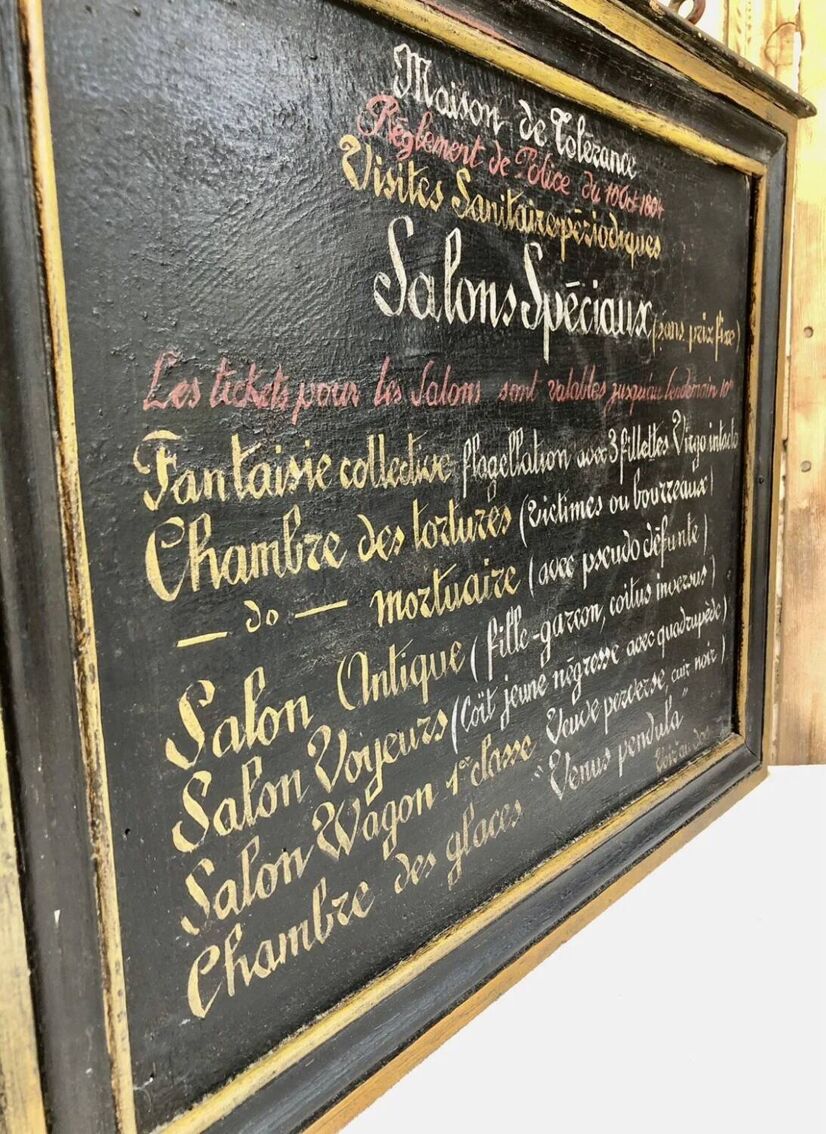 Maison de Tolérance
Règlement de Police du 16 Oct 1804
Visites Sanitaires périodiques
Salons Spéciaux (sans prix fixe)
Les tickets pour les Salons sont valables jusqu'au lendemain 10h
Fantaisie collective flagellation avec 3 fillettes Virgo intacta
Chambre des tortures (victimes ou bourreaux)
— do — mortuaire (avec pseudo défunte)
Salon Antique (fille-garçon, coïtus inversus)
Salon Voyeurs (Coït jeune négresse avec quadrupède)
Salon Wagon 1re classe Veuve perverse, cuir noir)
Chambre des glaces "Venus pendula"
Voir au dos